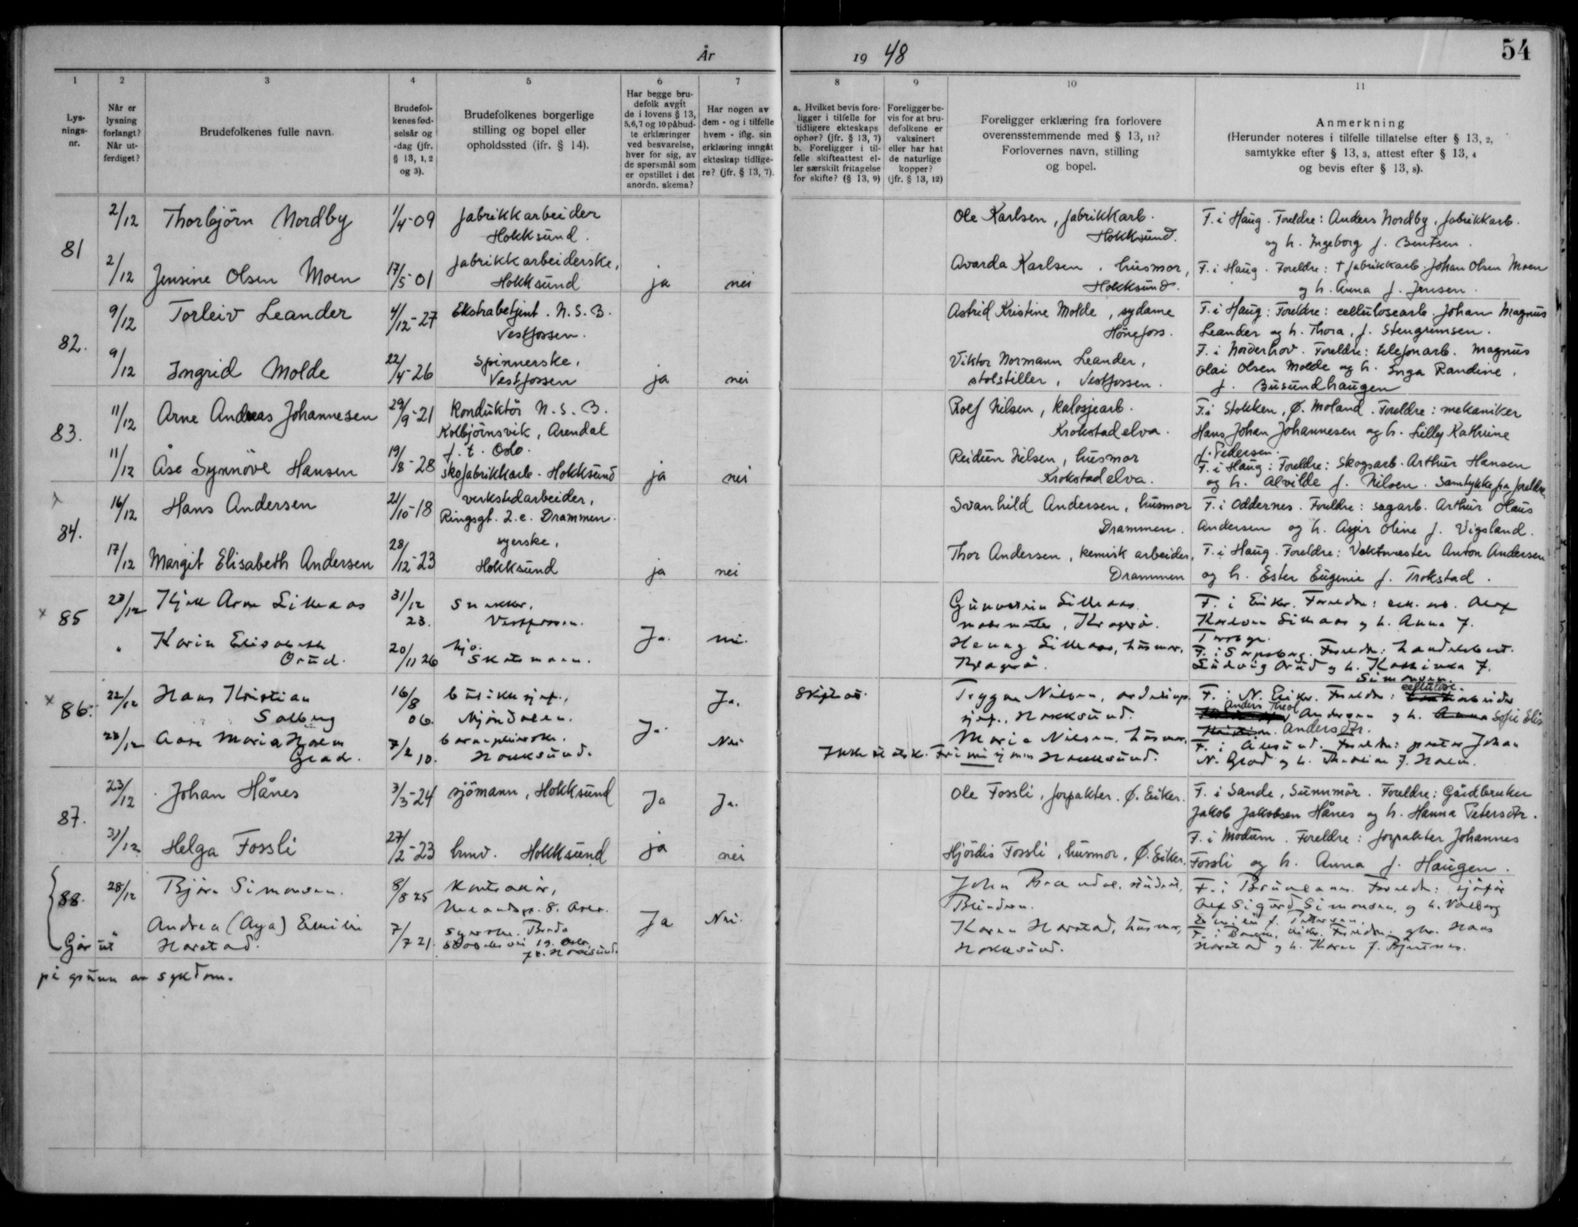 År 19 48
54
1 2 3 4 5 6 7 8 9 10 11
Lys-
nings-
nr.
Når er
lysning
forlangt?
Når ut-
ferdiget?
Brudefolkenes fulle navn.
Brudefol-
kenes fød-
selsår og
-dag (jfr.
§ 13, 1, 2
og 3).
Brudefolkenes borgerlige
stilling og bopel eller
opholdssted (ifr. § 14).
Har begge bru-
defolk avgit
de i lovens § 13,
5,6,7 og 10 påbud-
te erklæringer
ved besvarelse,
hver for sig, av
de spørsmål som
er opstillet i det
anordn. skema?
Har nogen av
dem - og i tilfelle
hvem - iflg. sin
erklæring inngåt
ekteskap tidlige-
re? (jfr. § 13, 7).
a. Hvilket bevis fore-
ligger i tilfelle for
tidligere ekteskaps
ophør? (jfr. § 13, 7)
b. Foreligger i til-
felle skifteattest el-
ler særskilt fritagelse
for skifte? (§ 13, 9)
Foreligger be-
vis for at bru-
defolkene er
vaksinert
eller har hat
de naturlige
kopper?
(jfr. § 13, 12)
Foreligger erklæring fra forlovere
overensstemmende med § 13, 11?
Forlovernes navn, stilling
og bopel.
Anmerkning
(Herunder noteres i tilfelle tillatelse efter § 13, 2,
samtykke efter § 13, 3, attest efter § 13, 4
og bevis efter § 13, 8).
81
2/12 Thorbjörn Nordby 1/4-09 fabrikkarbeider
Hokksund.
Ole Karlsen, fabrikkarb.
Hokksund.
F. i Haug. Foreldre: Anders Nordby, fabrikkarb.
og h. Ingeborg f. Bentsen.
2/12 Jensine Olsen Moen 17/5-01 fabrikkarbeiderske,
Hokksund ja nei
Avarda Karlsen, husmor,
Hokksund.
F. i Haug. Foreldre: † fabrikkarb. Johan Olsen Moen
og h. Anna f. Jensen.
82.
9/12 Torleiv Leander 4/12-27 Ekstrabetjent. N.S.B.
Vestfossen.
Astrid Kristine Molde, sydame
Hönefoss.
F. i Haug: Foreldre: cellulosearb. Johan Magnus
Leander og h. Thora, f. Stengrimsen.
9/12 Ingrid Molde 22/4-26 Spinnerske,
Vestfossen ja nei
Viktor Normann Leander,
stolstiller, Vestfossen.
F. i Norderhov. Foreldre: telefonarb. Magnus
Olai Olsen Molde og h. Inga Randine,
f. Busundhaugen
83.
11/12 Arne Andreas Johannesen 29/9-21 Konduktör N.S.B.
Kolbjörnsvik, Arendal
f.t. Oslo.
Rolf Nilsen, kalosjearb.
Krokstadelva.
F. i Stokken, Ø. Moland. Foreldre: mekaniker
Hans Johan Johannesen og h. Lilly Kathrine
f. Pedersen.
11/12 Åse Synnöve Hansen 19/8-28 Skofabrikkarb. Hokksund ja nei
Reidun Nilsen, husmor
Krokstadelva.
F. i Haug: Foreldre: Skogsarb. Arthur Hansen
og h. Alvilde f. Nilsen. Samtykke fra foreldre
84.
16/12 Hans Andersen 21/10-18 verkstedarbeider,
Ringsgt. 2.e. Drammen.
Svanhild Andersen, husmor
Drammen.
F. i Oddernes. Foreldre: sagarb. Arthur Haus
Andersen og h. Asjir Oline f. Vigsland.
17/12 Margit Elisabeth Andersen 28/12-23 syerske,
Hokksund ja nei
Thor Andersen, kemisk arbeider,
Drammen
F. i Haug. Foreldre: Vaktmester Anton Andersen
og h. Ester Eugenie f. Trokstad.
x 85
23/12 31/12
23. Snekker,
Vestfossen.
F. i Eiker.
Karin Elisabeth
Orud. 20/11 26 Ja. nei.
F. i Sarpsborg.
Ludvig Orud og h.
f.
Simonsen.
x 86.
22/12 Hans Kristian
Solberg 16/8
06. Mjöndalen. Ja. Ja.
Trygve Nilsen,
Hokksund.
F. i N. Eiker. cellulose
arbeider
Anders Theol
Andersen og h. Sofie Elis
Andersdtr.
23/12 Aase Maria
Grad. 7/2 10.
Hokksund. Nei
Maria Nilsen, husmor
Hokksund.
Johan
N. Grad og h.
87.
23/12 Johan Hånes 3/3-24 sjömann, Hokksund Ja Ja.
Ole Fossli, forpakter. Ø. Eiker.
F. i Sande, Sunnmör. Foreldre: Gårdbruker
Jakob Jakobsen Hånes og h. Hanna Petersdtr.
31/12 Helga Fossli 27/2-23 husm. Hokksund ja nei
Hjördis Fossli, husmor, Ø. Eiker.
F. i Modum. Foreldre: forpakter Johannes
Fossli og h. Anna f. Haugen.
88.
28/12 Björn Simonsen. 8/8 25 Kontorist,
John
Blindern.
Sigurd Simonsen, og h. Valborg
Andrea (Aya) Emilie
Harstad. 7/7 21. Ja Nei.
Karen Harstad, husmor,
Hokksund.
Harstad og h. Karen f.
Går ut
på grunn av sykdom.